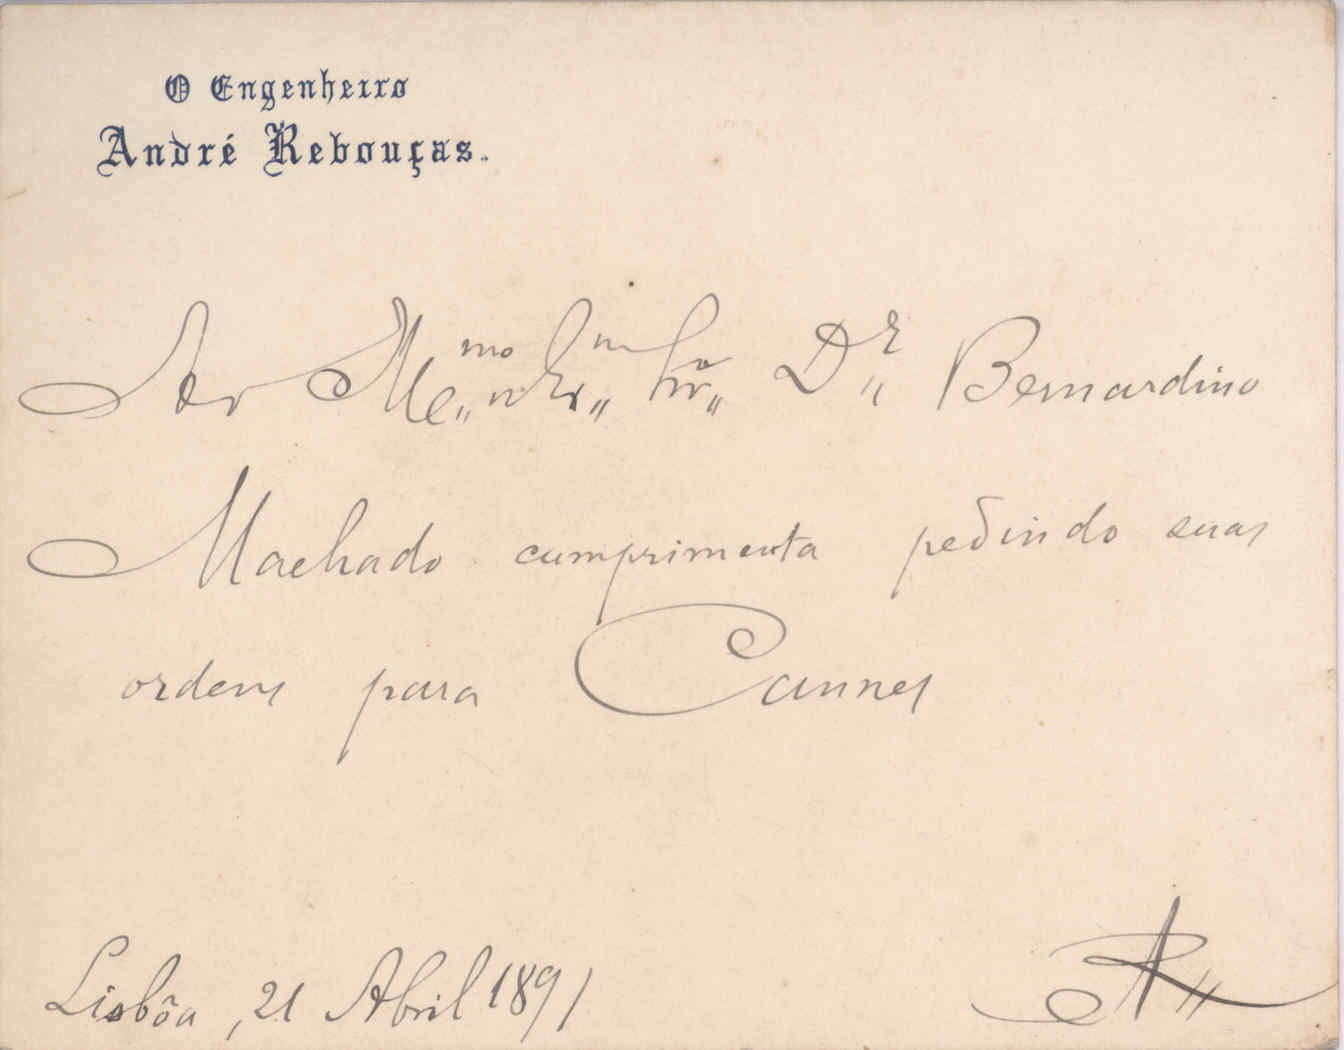 O Engenheiro
André Rebouças.
Ao Dr Bernardino
Machado cumprimenta pedindo suas
ordens para Cannes
Lisbôa, 21 Abril 1891
AR